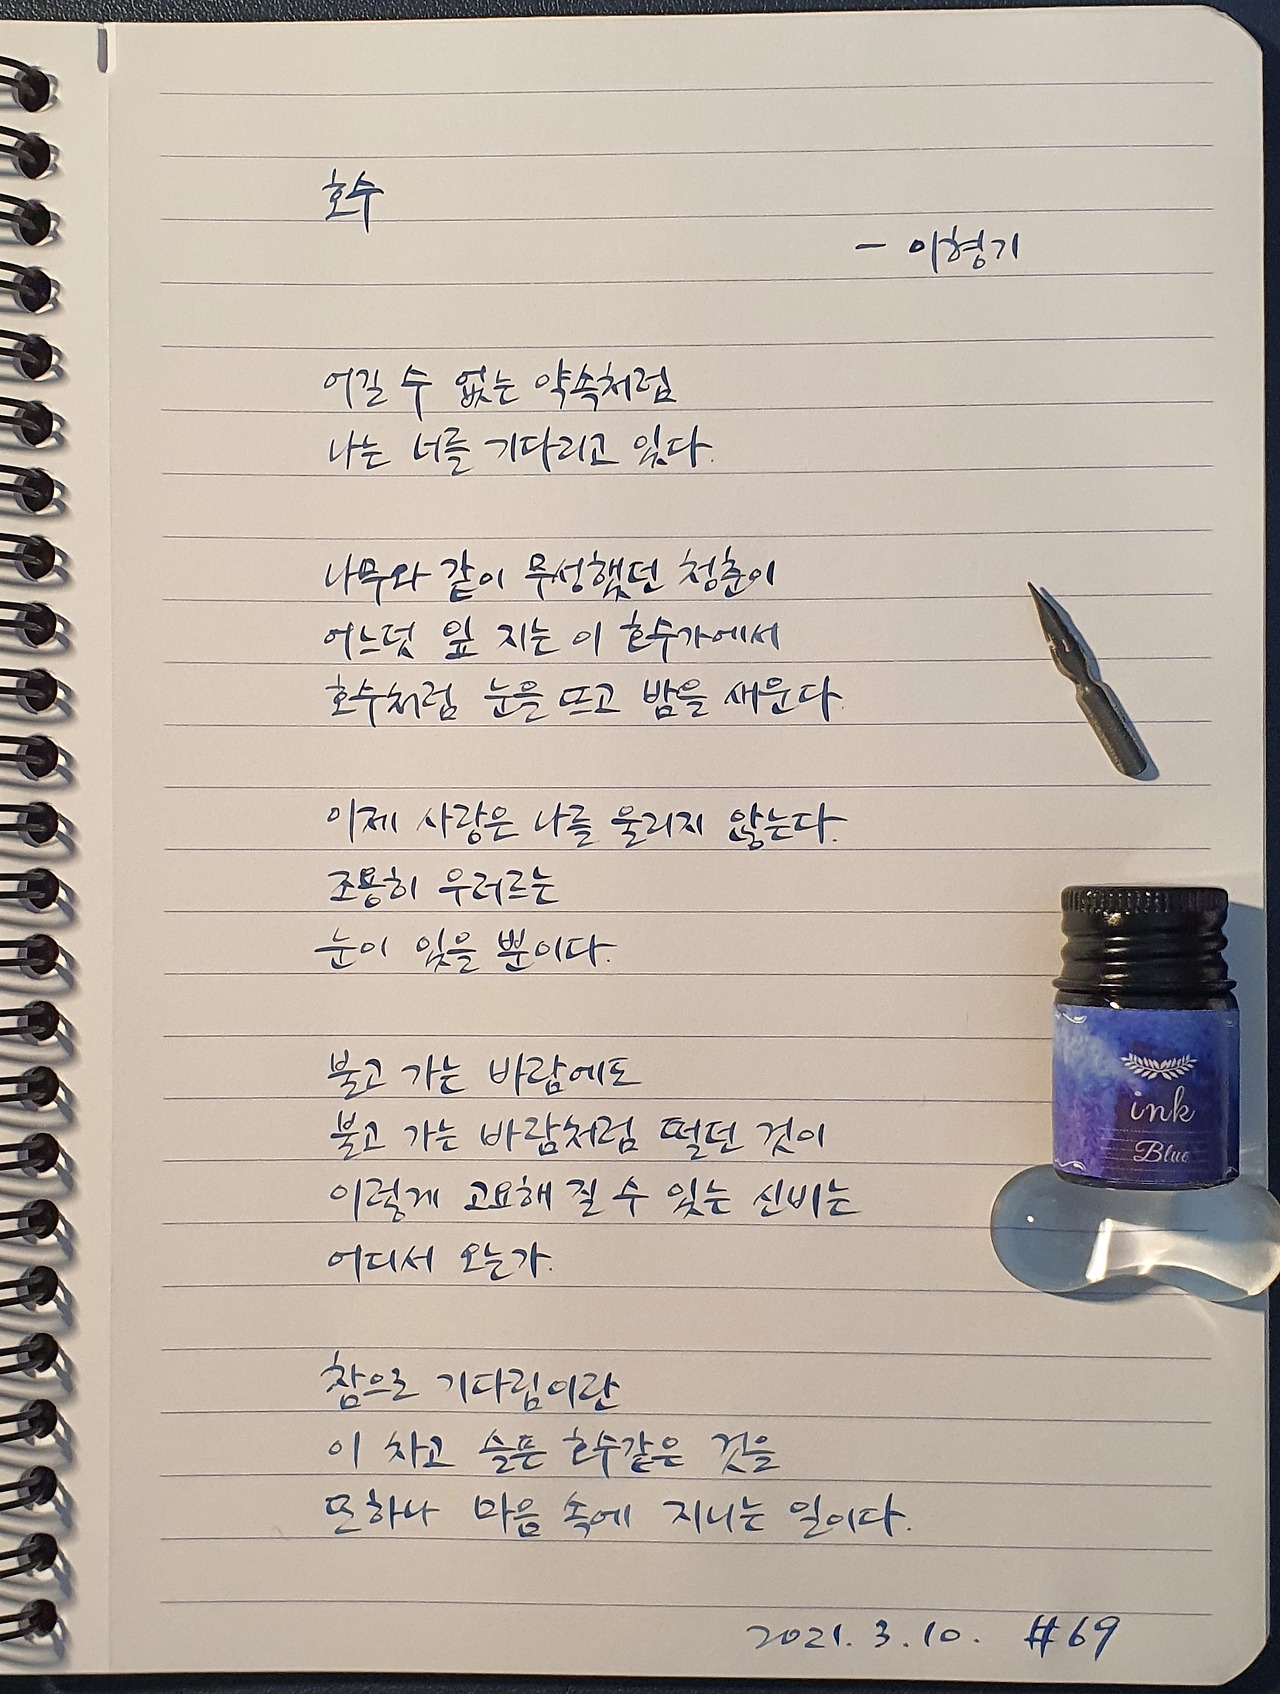 호수
- 이형기
어길 수 없는 약속처럼
나는 너를 기다리고 있다.
나무와 같이 무성했던 청춘이
어느덧 잎 지는 이 호수가에서
호수처럼 눈을 뜨고 밤을 새운다.
이제 사랑은 나를 울리지 않는다.
조용히 우러르는
눈이 있을 뿐이다.
불고 가는 바람에도
불고 가는 바람처럼 떨던 것이
이렇게 고요해 질 수 있는 신비는
어디서 오는가.
참으로 기다림이란
이 차고 슬픈 호수같은 것을
또하나 마음 속에 지니는 일이다.
2021. 3. 10. #69
ink
Blue